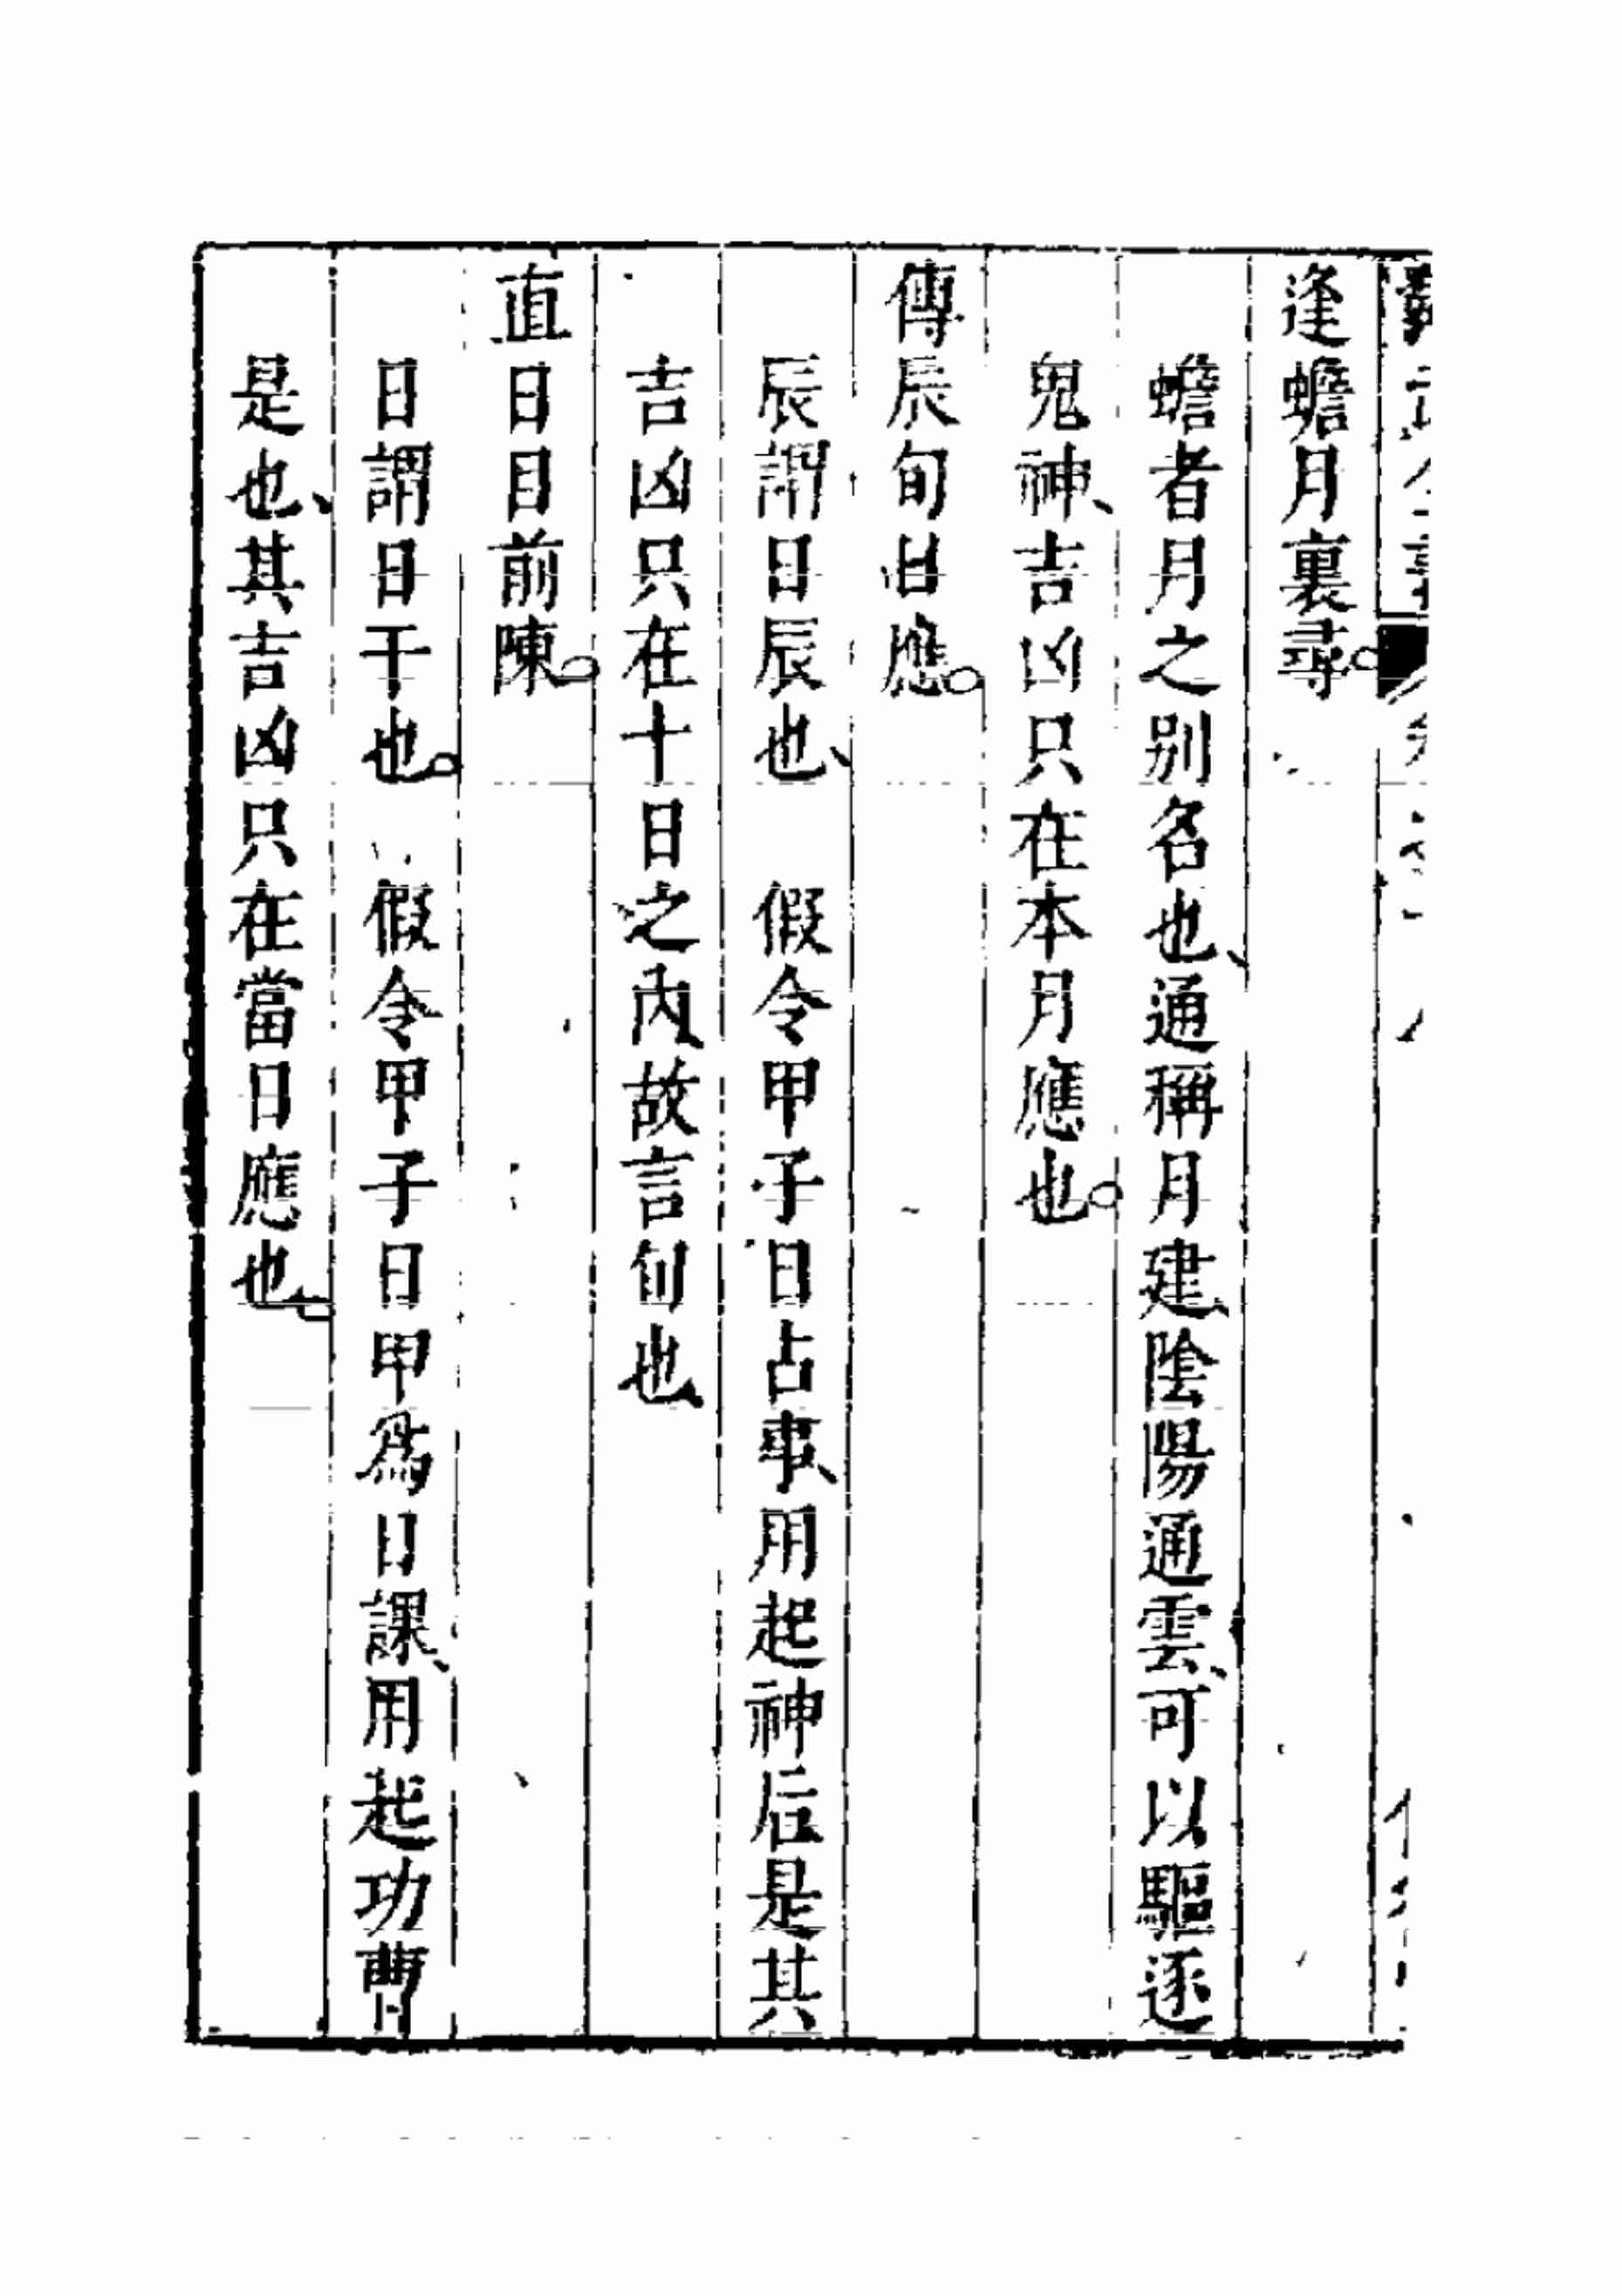 逢蟾月裏尋。
蟾者月之别名也、通稱月建陰陽通雲、可以驅逐
鬼神、吉凶只在本月應也。
傳辰旬日應。
辰謂日辰也、假令甲子日占事、用起神后是其
吉凶只在十日之內、故言旬也、
直日目前陳。
日謂日干也。假令甲子日甲爲日課、用起功曹
是也、其吉凶只在當日應也。